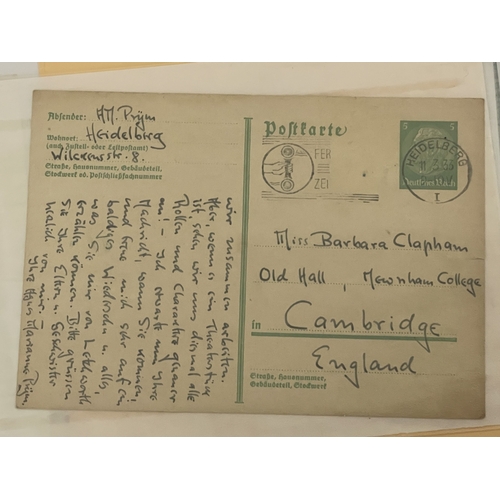 Absender: A.M. Prym
Wohnort: Heidelberg
(auch Zustell- oder Leitpostamt)
Wilckensstr. 8.
Straße, Hausnummer, Gebäudeteil,
Stockwerk od. Postschließfachnummer
Postkarte
FER
ZEI
HEIDELBERG
1
5
5
Deutsches Reich
Miss Barbara Clapham
Old Hall, Newnham College
in Cambridge
England
Straße, Hausnummer,
Gebäudeteil, Stockwerk
wir zusammen arbeiten.
Hole, wenn es ein Theaterstück
ist, sehen wir uns diesmal alle
Rollen und Charaktere genauer
an! - Ich erwarte nun Ihre
Nachricht, wann Sie kommen,
und freue mich sehr auf ein
baldiges Wiedersehn u. alles,
was Sie mir von Letchworth
erzählen können. Bitte grüssen
Sie Ihre Eltern u. Geschwister
herzlich von mir.
Ihre Marianne Prym.